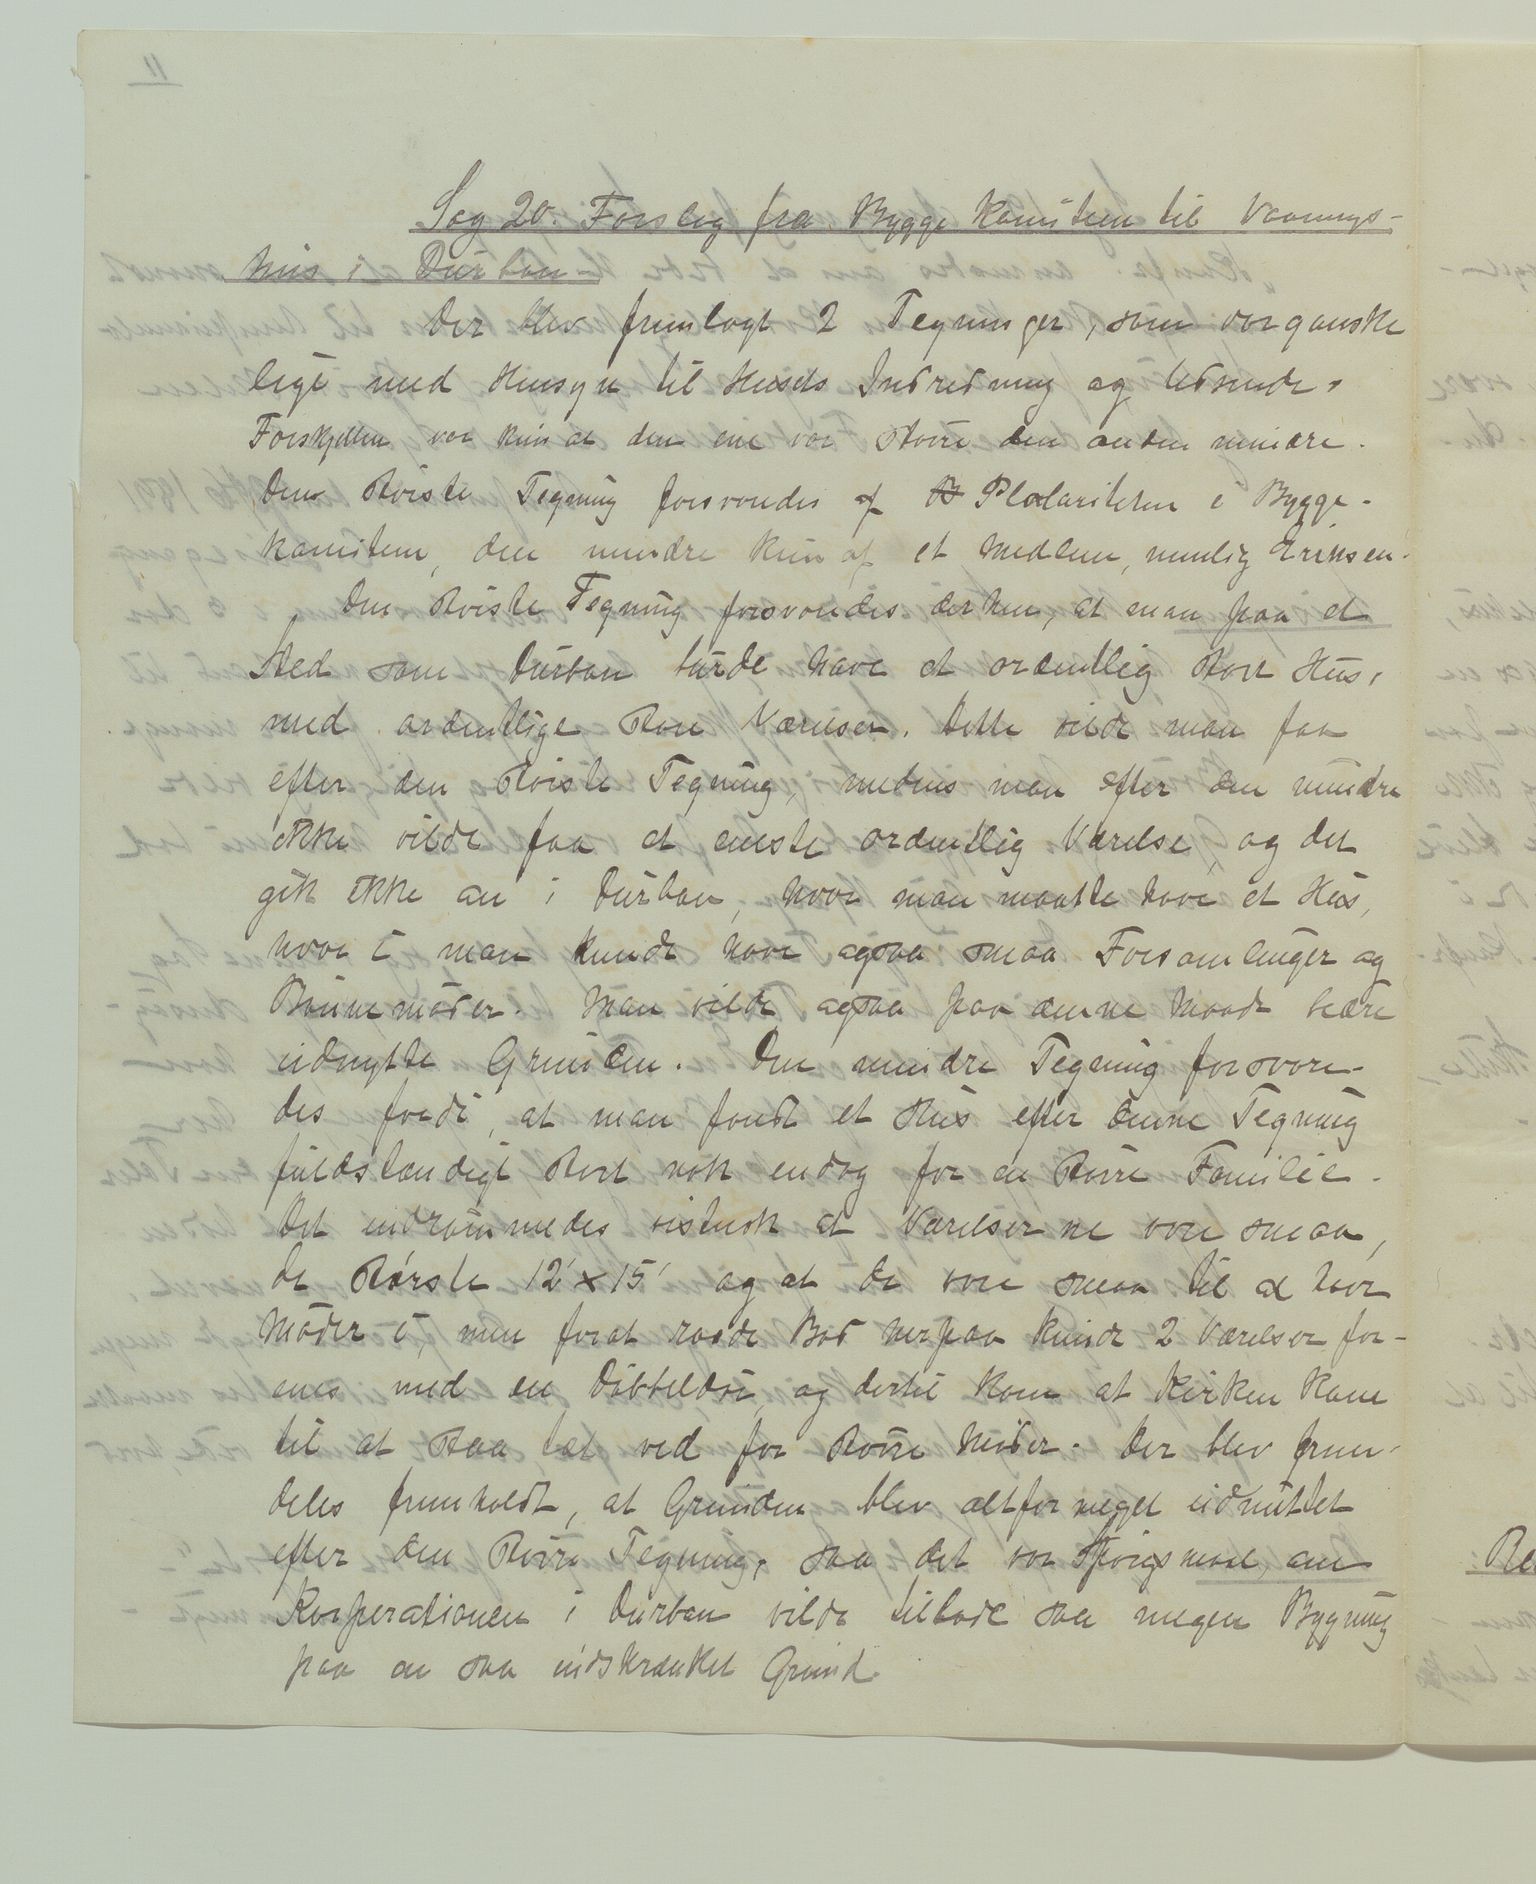 Sag 20. Forslag fra Byggekomiteen til Vaanings-
hus i Durban
Der blev fremlagt 2 Tegninger, som var ganske
lige med Hensyn til Husets Indredning og Udseende,
Forskjellen var kun at den ene var større den anden mindre.
Den største Tegning forsvaredes af Pluraliteten i Bygge-
komiteen, den mindre kun af et Medlem, nemlig Eriksen.
Den største Tegning forsvaredes derhen, at man paa et
Sted som Durban burde have et ordentlig stort Hus,
med ordentlige store Værelser. Dette vilde man faa
efter den største Tegning, medens man efter den mindre
ikke vilde faa et eneste ordentlig Værelse, og det
gik ikke an i Durban, hvor man maatte have et Hus,
hvor i man kunde have ogsaa smaa Forsamlinger og
Bønnemøder. Man vilde ogsaa paa denne Maade bedre
udnytte Grunden. Den mindre Tegning forsvare-
des fordi, at man fandt et Hus efter denne Tegning
fuldstændigt stort nok endog for en større Familie.
Det indrømmedes vistnok at Værelserne vare smaa,
de største 12' x 15' og at de vare smaa til at have
Møder i, men forat raade Bod herpaa kunde 2 Værelser for-
enes med en Dobbeldør, og dertil kom at Kirken kom
til at staa tæt ved for større Møder. Der blev frem-
deles fremholdt, at Grunden blev altfor meget udnyttet
efter den større Tegning, saa det var Spørgsmaal, om
Korporationen i Durban vilde tillade saa megen Bygning
paa en saa indskrænket Grund.
11